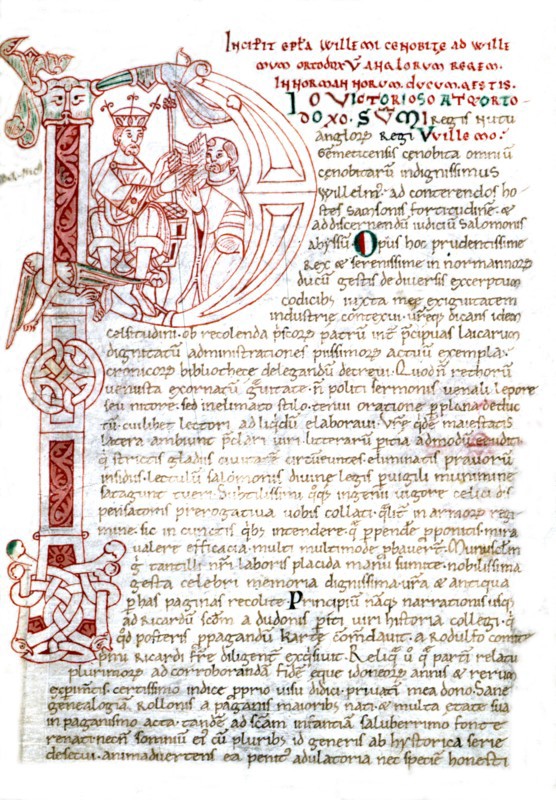 Incipit epła Willemi cenobitę ad Wille
mum ortodoxū anglorum regem.
In norman norum. ducum. gestis.
Pio victorioso atq orto
doxo. Sūmi regis nutu
anglorꝫ regi Willemo.
Gemeticensis cenobita omniū
cenobitarū indignissimus
Willelmꝰ. ad conterendos ho
stes sansonis fortitudinē. &
ad discernendū iudiciū salomonis
abyssū. Opus hoc prudentissime
rex & serenissime in normannorꝫ
ducū gestis de diversis excerptum
codicibꝫ iuxta meę exiguitatem
industrię contexui. dicans idem
celsitudini. ob recolenda patrū int p̄cipuas laicarum
dignitatū administrationes piissimorꝫ actuū exempla.
cronicorꝫ bibliothecę delegandū decrevi. Quod n̄ rethorū
venusta exornatū gravitate. n̄ politi sermonis venali lepore
seu nitore. sed inelimato stilo. tenui oratione p̱ plana deduc
tū cuilibet lectori ad liqdū elaboravi. Vrę qdē maiestatis
latera ambiunt p̄clari viri litterarū pitia admodū eruditi.
q̄ strictis gladiis civitatē circūeuntes. eliminatis pravorū
insidiis. lectulū salomonis divinę legis puigili munimine
satagunt tueri. Subtilissimi ingenii vigore celic dis
pensatoris prerogativa vobis collati. in armorꝫ regi
mine. sic in cunctis qbꝫ intendere. p̱ponitis. mira
valere efficacia. multi multimode
tantilli nr̄i laboris placida manu sumite. nobilissima
gesta celebri memoria dignissima. v̄ra & antiqua
p̱ has paginas recolite. Principiū naqꝫ narrationis usqꝫ
ad Ricardū scdm a dudonis piti viri historia collegi. q
qd posteris p̱pagandū kartę cōmdavit. a Rodulfo comite
pmi Ricardi fr̄e diligent exqsivit. Reliq v̄o partī relatu
plurimorꝫ ad corroborandā fidē eque idoneorꝫ annis & rerum
expimtis. certissimo indice p̱prio visu didici. privatī mea dono. Sane
genealogiā Rollonis a paganis maioribꝫ nati. & multa etate sua
in paganismo acta. tandē ad scam infantiā saluberrimo fonte
renati. necn̄ somniū eiꝰ cū pluribꝫ id generis ab hystorica serie
desecui. animadvertens ea penitꝰ adulatoria. nec speciē honesti